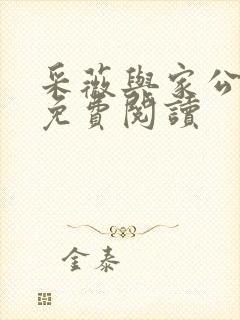 采薇與家公
免費閱讀
金泰